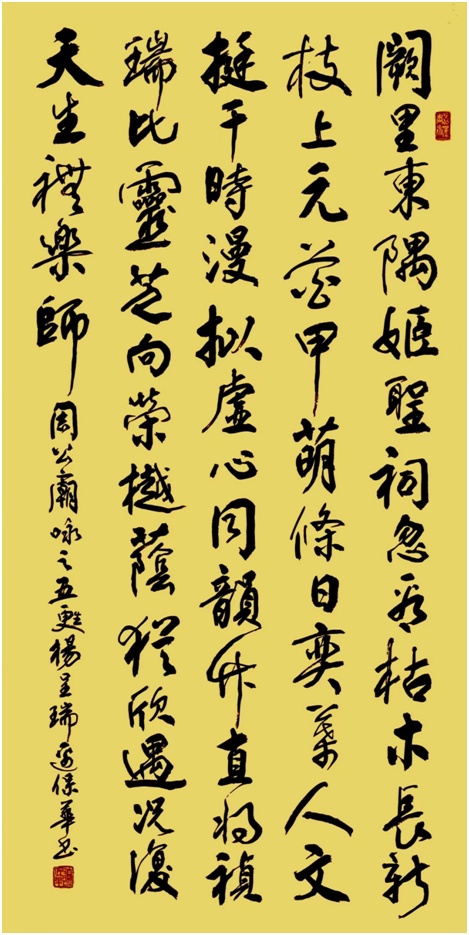 闕里東隅姬聖祠忽看枯木長新
枝上元花甲萌條日奕葉人文
挺干時漫拟虛心同韻竹直將禎
瑞比靈芝向榮樾蔭猶欣遇況復
天生禮樂師
周公廟咏之五甦楊呈瑞邊保華書